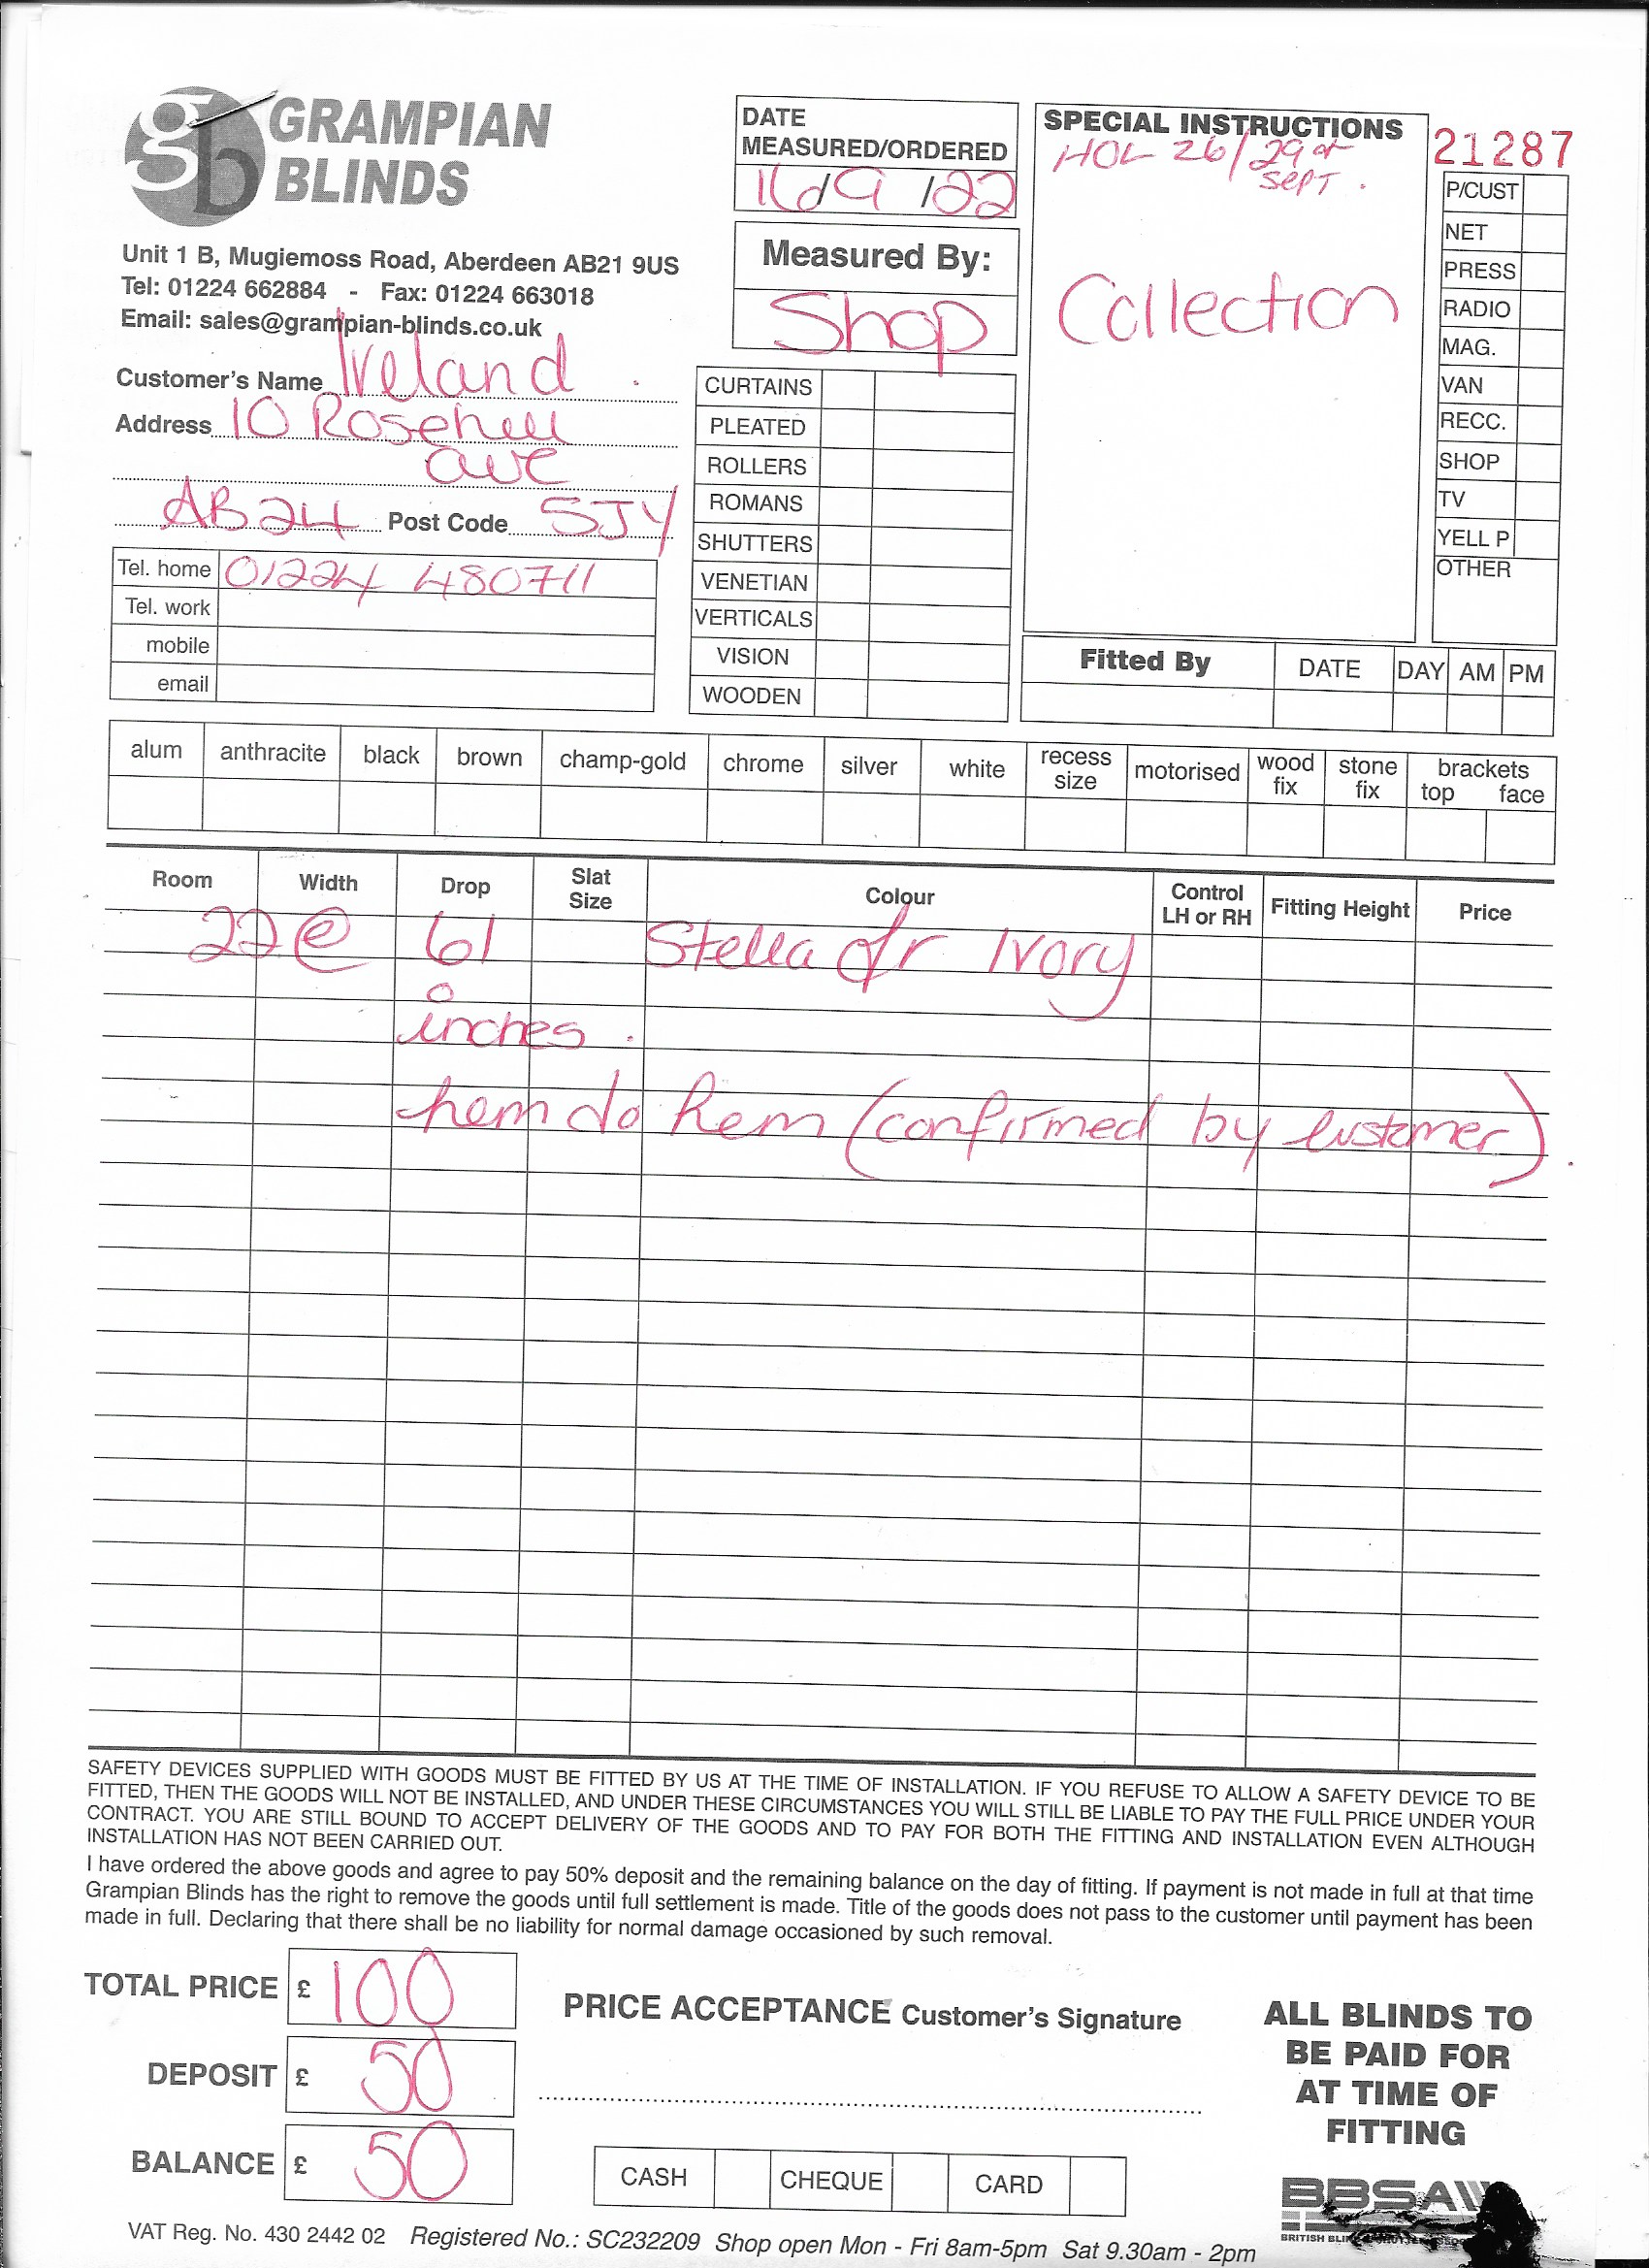 GRAMPIAN
BLINDS
Unit 1 B, Mugiemoss Road, Aberdeen AB21 9US
Tel: 01224 662884 - Fax: 01224 663018
Email: sales@grampian-blinds.co.uk
Customer's Name Ireland
Address 10 Rosehill
ave
AB24 Post Code 5JY
Tel. home 01224 480711
Tel. work
mobile
email
DATE
MEASURED/ORDERED
16/9/22
Measured By:
Shop
CURTAINS
PLEATED
ROLLERS
ROMANS
SHUTTERS
VENETIAN
VERTICALS
VISION
WOODEN
SPECIAL INSTRUCTIONS
HOL 26/29
SEPT.
Collection
21287
P/CUST
NET
PRESS
RADIO
MAG.
VAN
RECC.
SHOP
TV
YELL P
OTHER
Fitted By DATE DAY AM PM
alum anthracite black brown champ-gold chrome silver white recess size motorised wood fix stone fix brackets top face
Room Width Drop Slat Size Colour Control LH or RH Fitting Height Price
22 @ 61 Stella fr Ivory
inches.
hem to hem (confirmed by customer)
SAFETY DEVICES SUPPLIED WITH GOODS MUST BE FITTED BY US AT THE TIME OF INSTALLATION. IF YOU REFUSE TO ALLOW A SAFETY DEVICE TO BE
FITTED, THEN THE GOODS WILL NOT BE INSTALLED, AND UNDER THESE CIRCUMSTANCES YOU WILL STILL BE LIABLE TO PAY THE FULL PRICE UNDER YOUR
CONTRACT. YOU ARE STILL BOUND TO ACCEPT DELIVERY OF THE GOODS AND TO PAY FOR BOTH THE FITTING AND INSTALLATION EVEN ALTHOUGH
INSTALLATION HAS NOT BEEN CARRIED OUT.
I have ordered the above goods and agree to pay 50% deposit and the remaining balance on the day of fitting. If payment is not made in full at that time
Grampian Blinds has the right to remove the goods until full settlement is made. Title of the goods does not pass to the customer until payment has been
made in full. Declaring that there shall be no liability for normal damage occasioned by such removal.
TOTAL PRICE £ 100
DEPOSIT £ 50
BALANCE £ 50
PRICE ACCEPTANCE Customer's Signature
CASH CHEQUE CARD
ALL BLINDS TO
BE PAID FOR
AT TIME OF
FITTING
BBSA
BRITISH
VAT Reg. No. 430 2442 02 Registered No.: SC232209 Shop open Mon - Fri 8am-5pm Sat 9.30am - 2pm